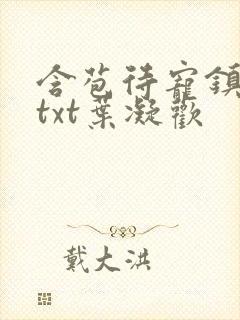 含苞待寵鎮
txt葉凝歡
戴大洪